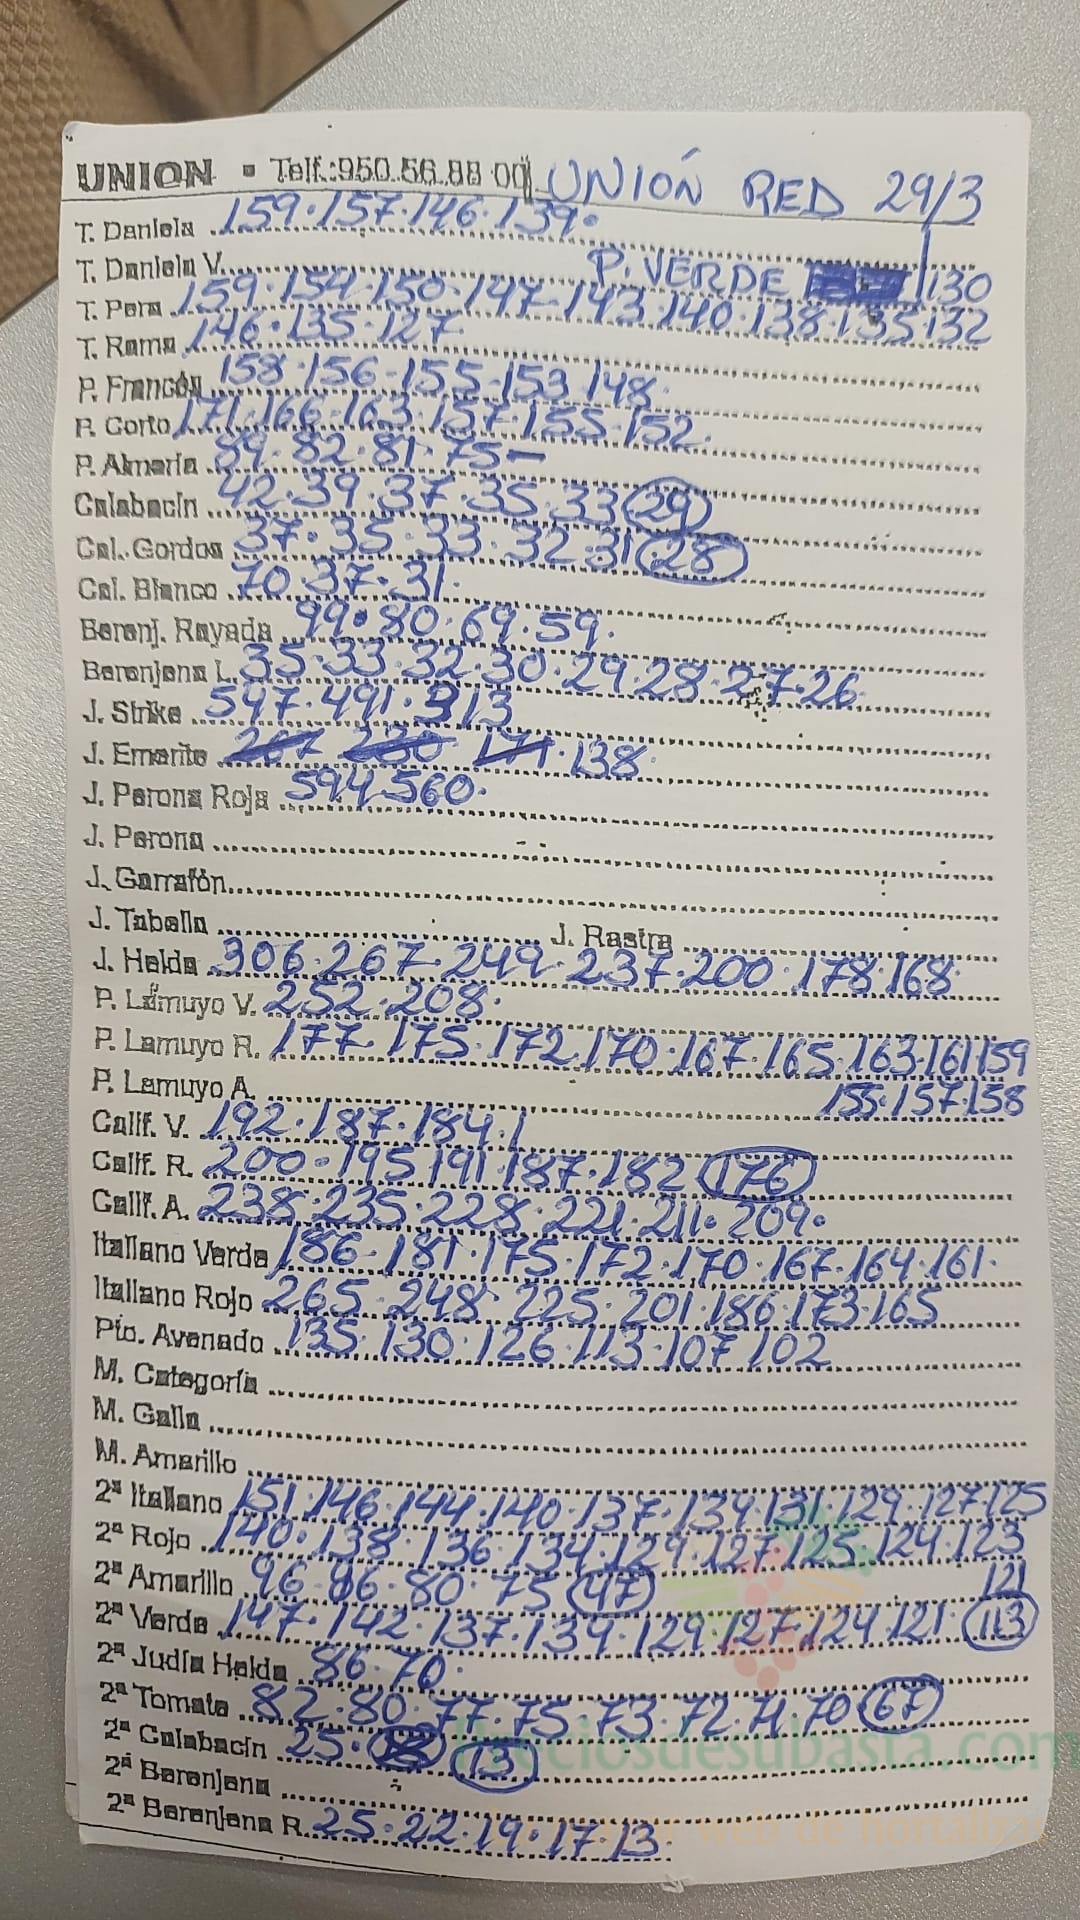 UNION ▪ Telf.:950.56.88 00 UNIÓN RED 29/3
T. Daniela 159·157·146·139·
T. Daniela V. P. VERDE 130
T. Pera 159·154·150·147·143·140·138·135·132
T. Rama 146·135·127
P. Francés 158·156-155·153 148·
P. Corto 171·166·163·157·155·152.
P. Almería 89·82·81·75-
Calabacín 42·39·37·35·33 29
Cal. Gordos 37·35·33·32·31 28
Cal. Blanco 70·37·31·
Berenj. Rayada 99·80·69·59·
Berenjena L. 35·33·32·30·29·28·27·26
J. Strike 597·491·313
J. Emerite 267 230 171·138·
J. Perona Roja 594 560·
J. Perona
J. Garrafón
J. Tabella J. Rastra
J. Helda 306·267·249·237·200·178·168·
P. Lamuyo V. 252·208·
P. Lamuyo R. 177·175·172·170·167·165·163·161·159
P. Lamuyo A. 155·157·158
Calif. V. 192·187·184·1
Calif. R. 200·195 191·187·182 176
Calif. A. 238·235·228·221·211·209·
Italiano Verde 186·181·175·172·170·167·164·161·
Italiano Rojo 265·248·225·201·186·173·165
Pto. Avenado 135·130·126·113·107 102
M. Categoría
M. Galla
M. Amarillo
2ª Italiano 151·146·144·140·137·134·131·129·127·125
2ª Rojo 140·138·136·134·129·127·125·124·123
2ª Amarillo 96·86·80·75 47 121
2ª Verde 147·142·137·134·129·127·124·121·113
2ª Judía Helda 86·70·
2ª Tomate 82·80·77·75·73·72·71·70 67
2ª Calabacín 25· 13
Preciosdesubasta.com
2ª Berenjena
2ª Berenjena R. 25·22·19·17 13·
web de hortalizas